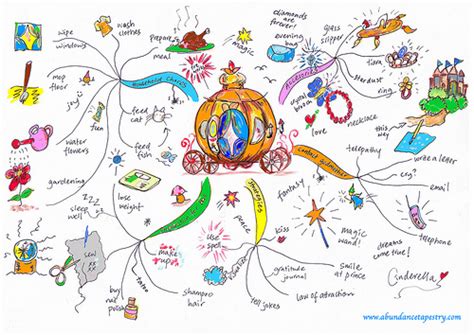 wipe
windows
wash
clothes
prepare
meal
magic
mop
floor
joy
fun
Household Chores
feed
cat
feed
fish
water
flowers
gardening
diamonds
are forever!
evening
bag
glass
slipper
tiara
stardust
ring
Accessories
crystal
brooch
love
necklace
this
way
telepathy
write a letter
contact Godmother
cry?
email
telephone
fantasy
magic
wand!
dreams
come true!
Cinderella
zzz
sleep
well
lose
weight
sew
tattoo
buy
nail
polish
shampoo
hair
use
spell
Strategies
visualize
kiss
gratitude
journal
tell jokes
smile
at prince
law of attraction
www.abundancetapestry.com